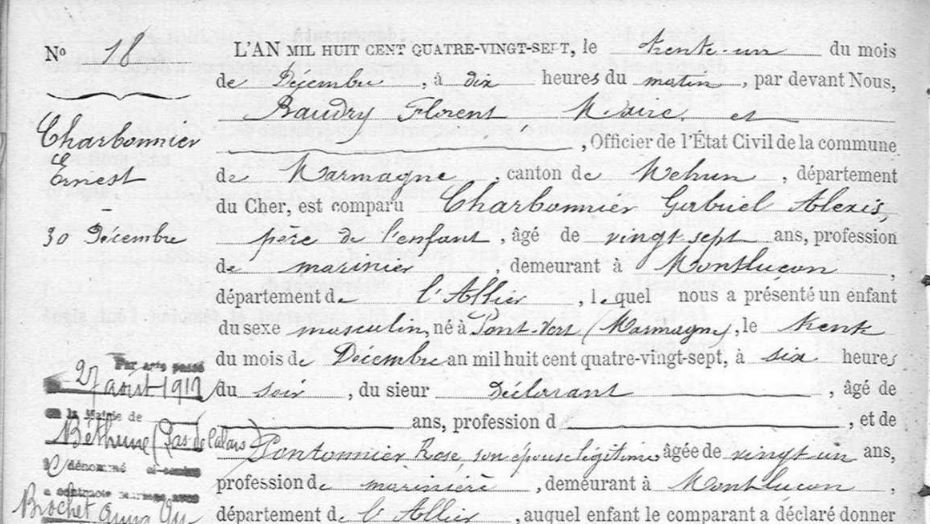 N° 18
Charbonnier
Ernest
30 Décembre
L'AN MIL HUIT CENT QUATRE-VINGT-SEPT, le trente-un du mois
de Décembre, à dix heures du matin, par devant Nous,
Baudry Florent Maire et
, Officier de l'État Civil de la commune
de Marmagne, canton de Mehun, département
du Cher, est comparu Charbonnier Gabriel Alexis,
père de l'enfant, âgé de vingt-sept ans, profession
de marinier, demeurant à Montluçon,
département de l'Allier, lequel nous a présenté un enfant
du sexe masculin, né à Pont-Vert (Marmagne), le trente
du mois de Décembre an mil huit cent quatre-vingt-sept, à six heures
du soir, du sieur Déclarant, âgé de
ans, profession d, et de
Pontonnier Rose, son épouse légitime âgée de vingt un ans,
profession de marinière, demeurant à Montluçon,
département d l'Allier, auquel enfant le comparant a déclaré donner
Par acte passé
27 août 1912
à la Mairie de
Béthune (Pas de Calais)
dénommé ci-contre
a contracté mariage avec
Brochet